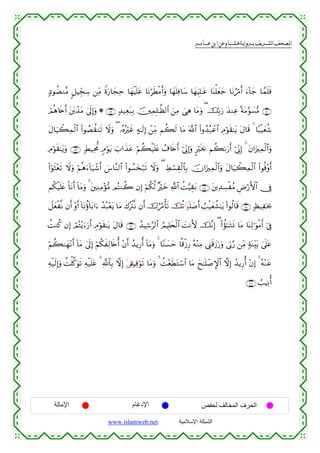 المصحف الشريف برواية هشام عن ابن عامر
فَلَمَّا جَآءَ أَمْرُنَا جَعَلْنَا عَٰلِيَهَا سَافِلَهَا وَأَمْطَرْنَا عَلَيْهَا حِجَارَةً مِّن سِجِّيلٍ مَّنضُودٍ
مُّسَوَّمَةً عِندَ رَبِّكَ وَمَا هِىَ مِنَ ٱلظَّٰلِمِينَ بِبَعِيدٍ ۞ وَإِلَىٰ مَدْيَنَ أَخَاهُمْ
شُعَيْبًا قَالَ يَٰقَوْمِ ٱعْبُدُوا۟ ٱللَّهَ مَا لَكُم مِّنْ إِلَٰهٍ غَيْرُهُۥ وَلَا تَنقُصُوا۟ ٱلْمِكْيَالَ
وَٱلْمِيزَانَ إِنِّىٓ أَرَىٰكُم بِخَيْرٍ وَإِنِّىٓ أَخَافُ عَلَيْكُمْ عَذَابَ يَوْمٍ مُّحِيطٍ وَيَٰقَوْمِ
أَوْفُوا۟ ٱلْمِكْيَالَ وَٱلْمِيزَانَ بِٱلْقِسْطِ وَلَا تَبْخَسُوا۟ ٱلنَّاسَ أَشْيَآءَهُمْ وَلَا تَعْثَوْا۟
فِى ٱلْأَرْضِ مُفْسِدِينَ بَقِيَّتُ ٱللَّهِ خَيْرٌ لَّكُمْ إِن كُنتُم مُّؤْمِنِينَ وَمَآ أَنَا۠ عَلَيْكُم
بِحَفِيظٍ قَالُوا۟ يَٰشُعَيْبُ أَصَلَوَٰتُكَ تَأْمُرُكَ أَن نَّتْرُكَ مَا يَعْبُدُ ءَابَآؤُنَآ أَوْ أَن نَّفْعَلَ
فِىٓ أَمْوَٰلِنَا مَا نَشَٰٓؤُا۟ إِنَّكَ لَأَنتَ ٱلْحَلِيمُ ٱلرَّشِيدُ قَالَ يَٰقَوْمِ أَرَءَيْتُمْ إِن كُنتُ
عَلَىٰ بَيِّنَةٍ مِّن رَّبِّى وَرَزَقَنِى مِنْهُ رِزْقًا حَسَنًا وَمَآ أُرِيدُ أَنْ أُخَالِفَكُمْ إِلَىٰ مَآ أَنْهَىٰكُمْ
عَنْهُ إِنْ أُرِيدُ إِلَّا ٱلْإِصْلَٰحَ مَا ٱسْتَطَعْتُ وَمَا تَوْفِيقِىَ إِلَّا بِٱللَّهِ عَلَيْهِ تَوَكَّلْتُ وَإِلَيْهِ
أُنِيبُ
الحرف المخالف لحفص الإدغام الإمالة
الشبكة الإسلامية www.islamweb.net